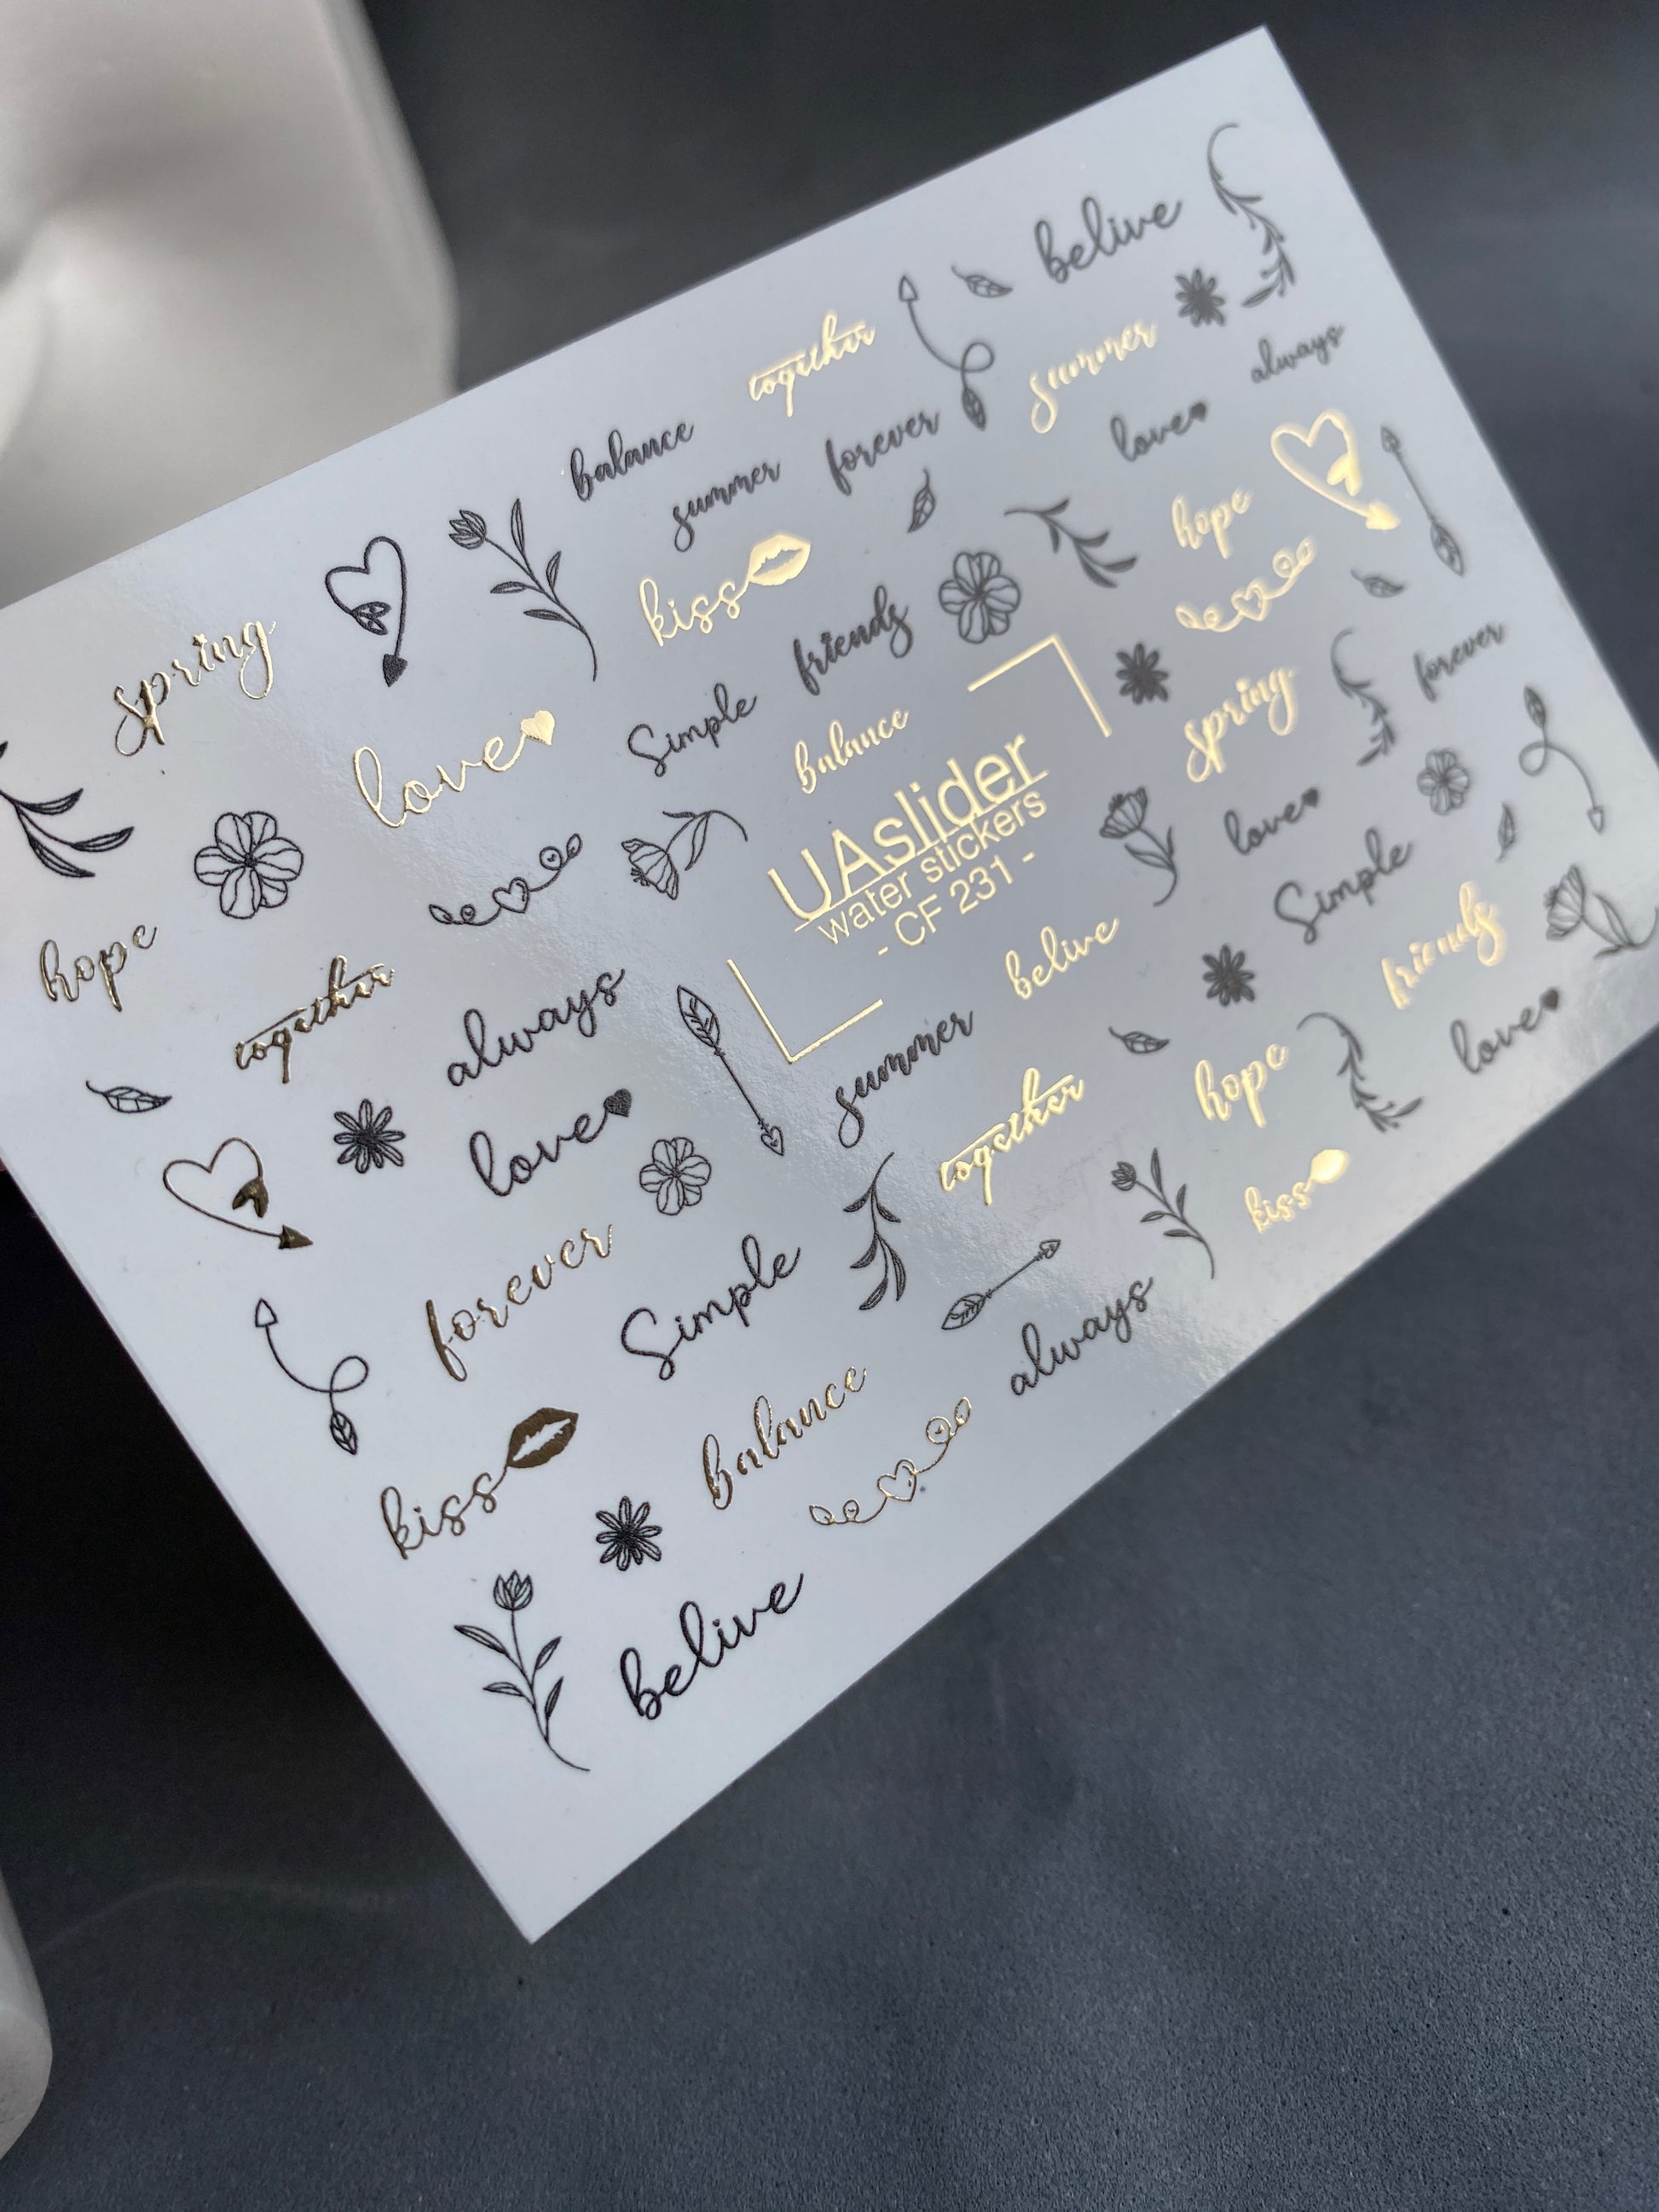 belive
together
balance
summer
always
forever
summer
love
spring
kiss
hope
friends
love
Simple
balance
spring
forever
UAslider
water stickers
- CF 231 -
love
Simple
hope
together
always
belive
friends
love
summer
love
together
hope
forever
kiss
Simple
always
balance
kiss
belive